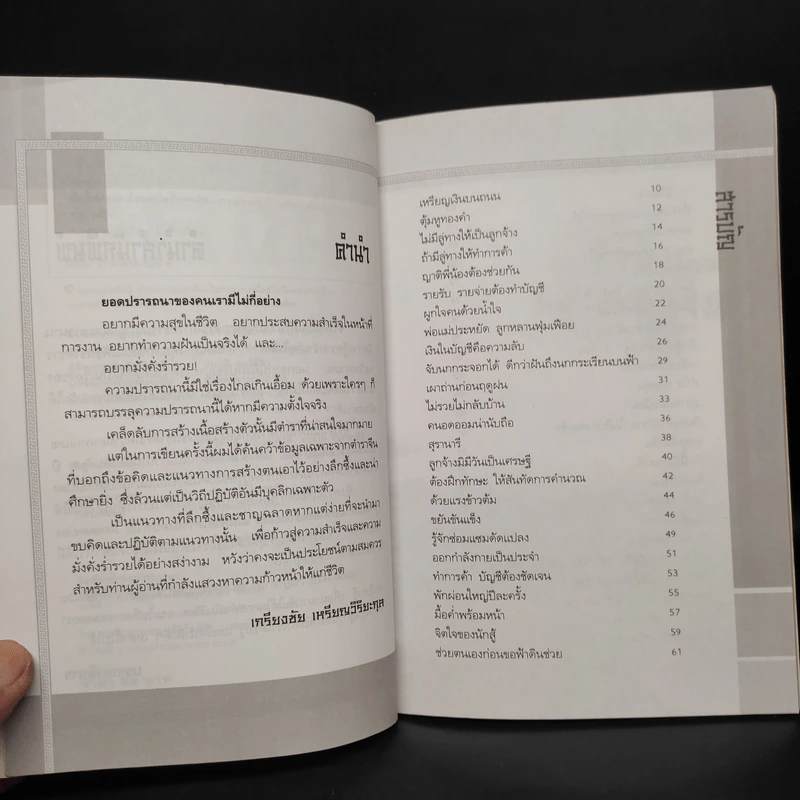 คำนำ
ยอดปรารถนาของคนเรามีไม่กี่อย่าง
อยากมีความสุขในชีวิต อยากประสบความสำเร็จในหน้าที่
การงาน อยากทำความฝันเป็นจริงได้ และ...
อยากมั่งคั่งร่ำรวย!
ความปรารถนานี้มิใช่เรื่องไกลเกินเอื้อม ด้วยเพราะใครๆ ก็
สามารถบรรลุความปรารถนานี้ได้หากมีความตั้งใจจริง
เคล็ดลับการสร้างเนื้อสร้างตัวนั้นมีตำราที่น่าสนใจมากมาย
แต่ในการเขียนครั้งนี้ผมได้ค้นคว้าข้อมูลเฉพาะจากตำราจีน
ที่บอกถึงข้อคิดและแนวทางการสร้างตนเอาไว้อย่างลึกซึ้งและน่า
ศึกษายิ่ง ซึ่งล้วนแต่เป็นวิถีปฏิบัติอันมีบุคลิกเฉพาะตัว
เป็นแนวทางที่ลึกซึ้งและชาญฉลาดหากแต่ง่ายที่จะนำมา
ขบคิดและปฏิบัติตามแนวทางนั้น เพื่อก้าวสู่ความสำเร็จและความ
มั่งคั่งร่ำรวยได้อย่างสง่างาม หวังว่าคงจะเป็นประโยชน์ตามสมควร
สำหรับท่านผู้อ่านที่กำลังแสวงหาความก้าวหน้าให้แก่ชีวิต
เกรียงชัย เหรียญวิริยะกุล
สารบัญ
เหรียญเงินบนถนน 10
ตุ้มหูทองคำ 12
ไม่มีลู่ทางให้เป็นลูกจ้าง 14
ถ้ามีลู่ทางให้ทำการค้า 16
ญาติพี่น้องต้องช่วยกัน 18
รายรับ รายจ่ายต้องทำบัญชี 20
ผูกใจคนด้วยน้ำใจ 22
พ่อแม่ประหยัด ลูกหลานฟุ่มเฟือย 24
เงินในบัญชีคือความลับ 26
จับนกกระจอกได้ ดีกว่าฝันถึงนกกระเรียนบนฟ้า 29
เผาถ่านก่อนฤดูฝน 31
ไม่รวยไม่กลับบ้าน 33
คนอดออมน่านับถือ 36
สุรานารี 38
ลูกจ้างมิมีวันเป็นเศรษฐี 40
ต้องฝึกทักษะ ให้สันทัดการคำนวณ 42
ด้วยแรงข้าวต้ม 44
ขยันขันแข็ง 46
รู้จักซ่อมแซมดัดแปลง 49
ออกกำลังกายเป็นประจำ 51
ทำการค้า บัญชีต้องชัดเจน 53
พักผ่อนใหญ่ปีละครั้ง 55
มื้อค่ำพร้อมหน้า 57
จิตใจของนักสู้ 59
ช่วยตนเองก่อนขอฟ้าดินช่วย 61